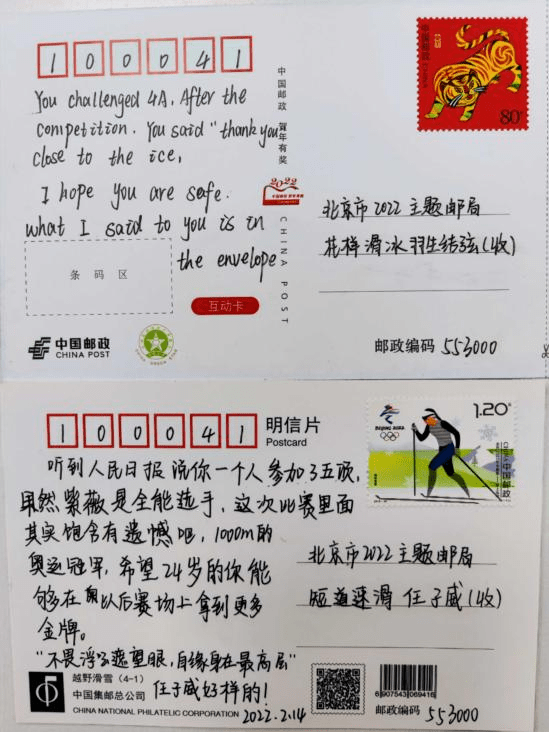 中国邮政
CHINA
80分
100041
You challenged 4A. After the
competition. You said "thank you
close to the ice,
I hope you are safe.
what I said to you is in
the envelope
中国邮政 贺年有奖
2022
CHINA POST
北京市2022主题邮局
花样滑冰羽生结弦(收)
条码区
互动卡
中国邮政
CHINA POST
邮政编码 553000
100041
明信片
Postcard
BEIJING 2022
1.20元
中国邮政
听到人民日报说你一个人参加了五项,
果然紫薇是全能选手,这次比赛里面
其实饱含有遗憾吧,1000m的
奥运冠军,希望24岁的你能
够在以后赛场上拿到更多
金牌。
"不畏浮云遮望眼,自缘身在最高层"
任子威好样的!
2022.2.14
北京市2022主题邮局
短道速滑 任子威(收)
越野滑雪 (4-1)
中国集邮总公司
CHINA NATIONAL PHILATELIC CORPORATION
6907543069416
邮政编码 553000